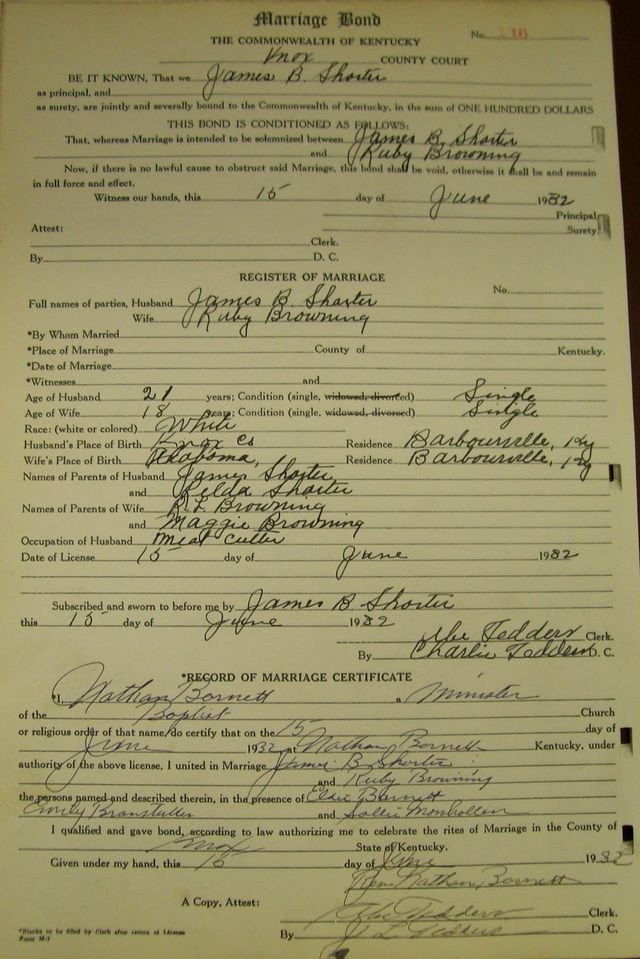 Marriage Bond
THE COMMONWEALTH OF KENTUCKY
No.
Knox COUNTY COURT
BE IT KNOWN, That we James B. Shorter
as principal, and
as surety, are jointly and severally bound to the Commonwealth of Kentucky, in the sum of ONE HUNDRED DOLLARS
THIS BOND IS CONDITIONED AS FOLLOWS:
That, whereas Marriage is intended to be solemnized between James B. Shorter
and Ruby Browning
Now, if there is no lawful cause to obstruct said Marriage, this bond shall be void, otherwise it shall be and remain
in full force and effect.
Witness our hands, this 15 day of June 1932
Principal
Attest: Surety
Clerk.
By D. C.
REGISTER OF MARRIAGE
No.
Full names of parties, Husband James B. Shorter
Wife Ruby Browning
*By Whom Married
*Place of Marriage County of Kentucky.
*Date of Marriage
*Witnesses and
Age of Husband 21 years; Condition (single, widowed, divorced) Single
Age of Wife 18 years; Condition (single, widowed, divorced) Single
Race: (white or colored) White
Husband's Place of Birth Knox Co Residence Barbourville, Ky
Wife's Place of Birth Alabama, Residence Barbourville, Ky
Names of Parents of Husband James Shorter
and Relda Shorter
Names of Parents of Wife R. L. Browning
and Maggie Browning
Occupation of Husband Meat Cutter
Date of License 15 day of June 1932
Subscribed and sworn to before me by James B. Shorter
this 15 day of June 1932
Abe Tedders Clerk.
By Charlie Tedders D. C.
*RECORD OF MARRIAGE CERTIFICATE
*I, Nathan Bornett a Minister
of the Baptist Church
or religious order of that name, do certify that on the 15 day of
June 1932 at Nathan Bornett Kentucky, under
authority of the above license, I united in Marriage James B. Shorter
and Ruby Browning
the persons named and described therein, in the presence of Elsie Barnett
Branstutter and Sollie Monhollen
I qualified and gave bond, according to law authorizing me to celebrate the rites of Marriage in the County of
Knox State of Kentucky.
Given under my hand, this 15 day of June 1932
Rev Nathan Bornett
A Copy, Attest: Abe Tedders Clerk.
By J L Tedders D. C.
*Blanks to be filed by Clerk after return of License
Form M-1